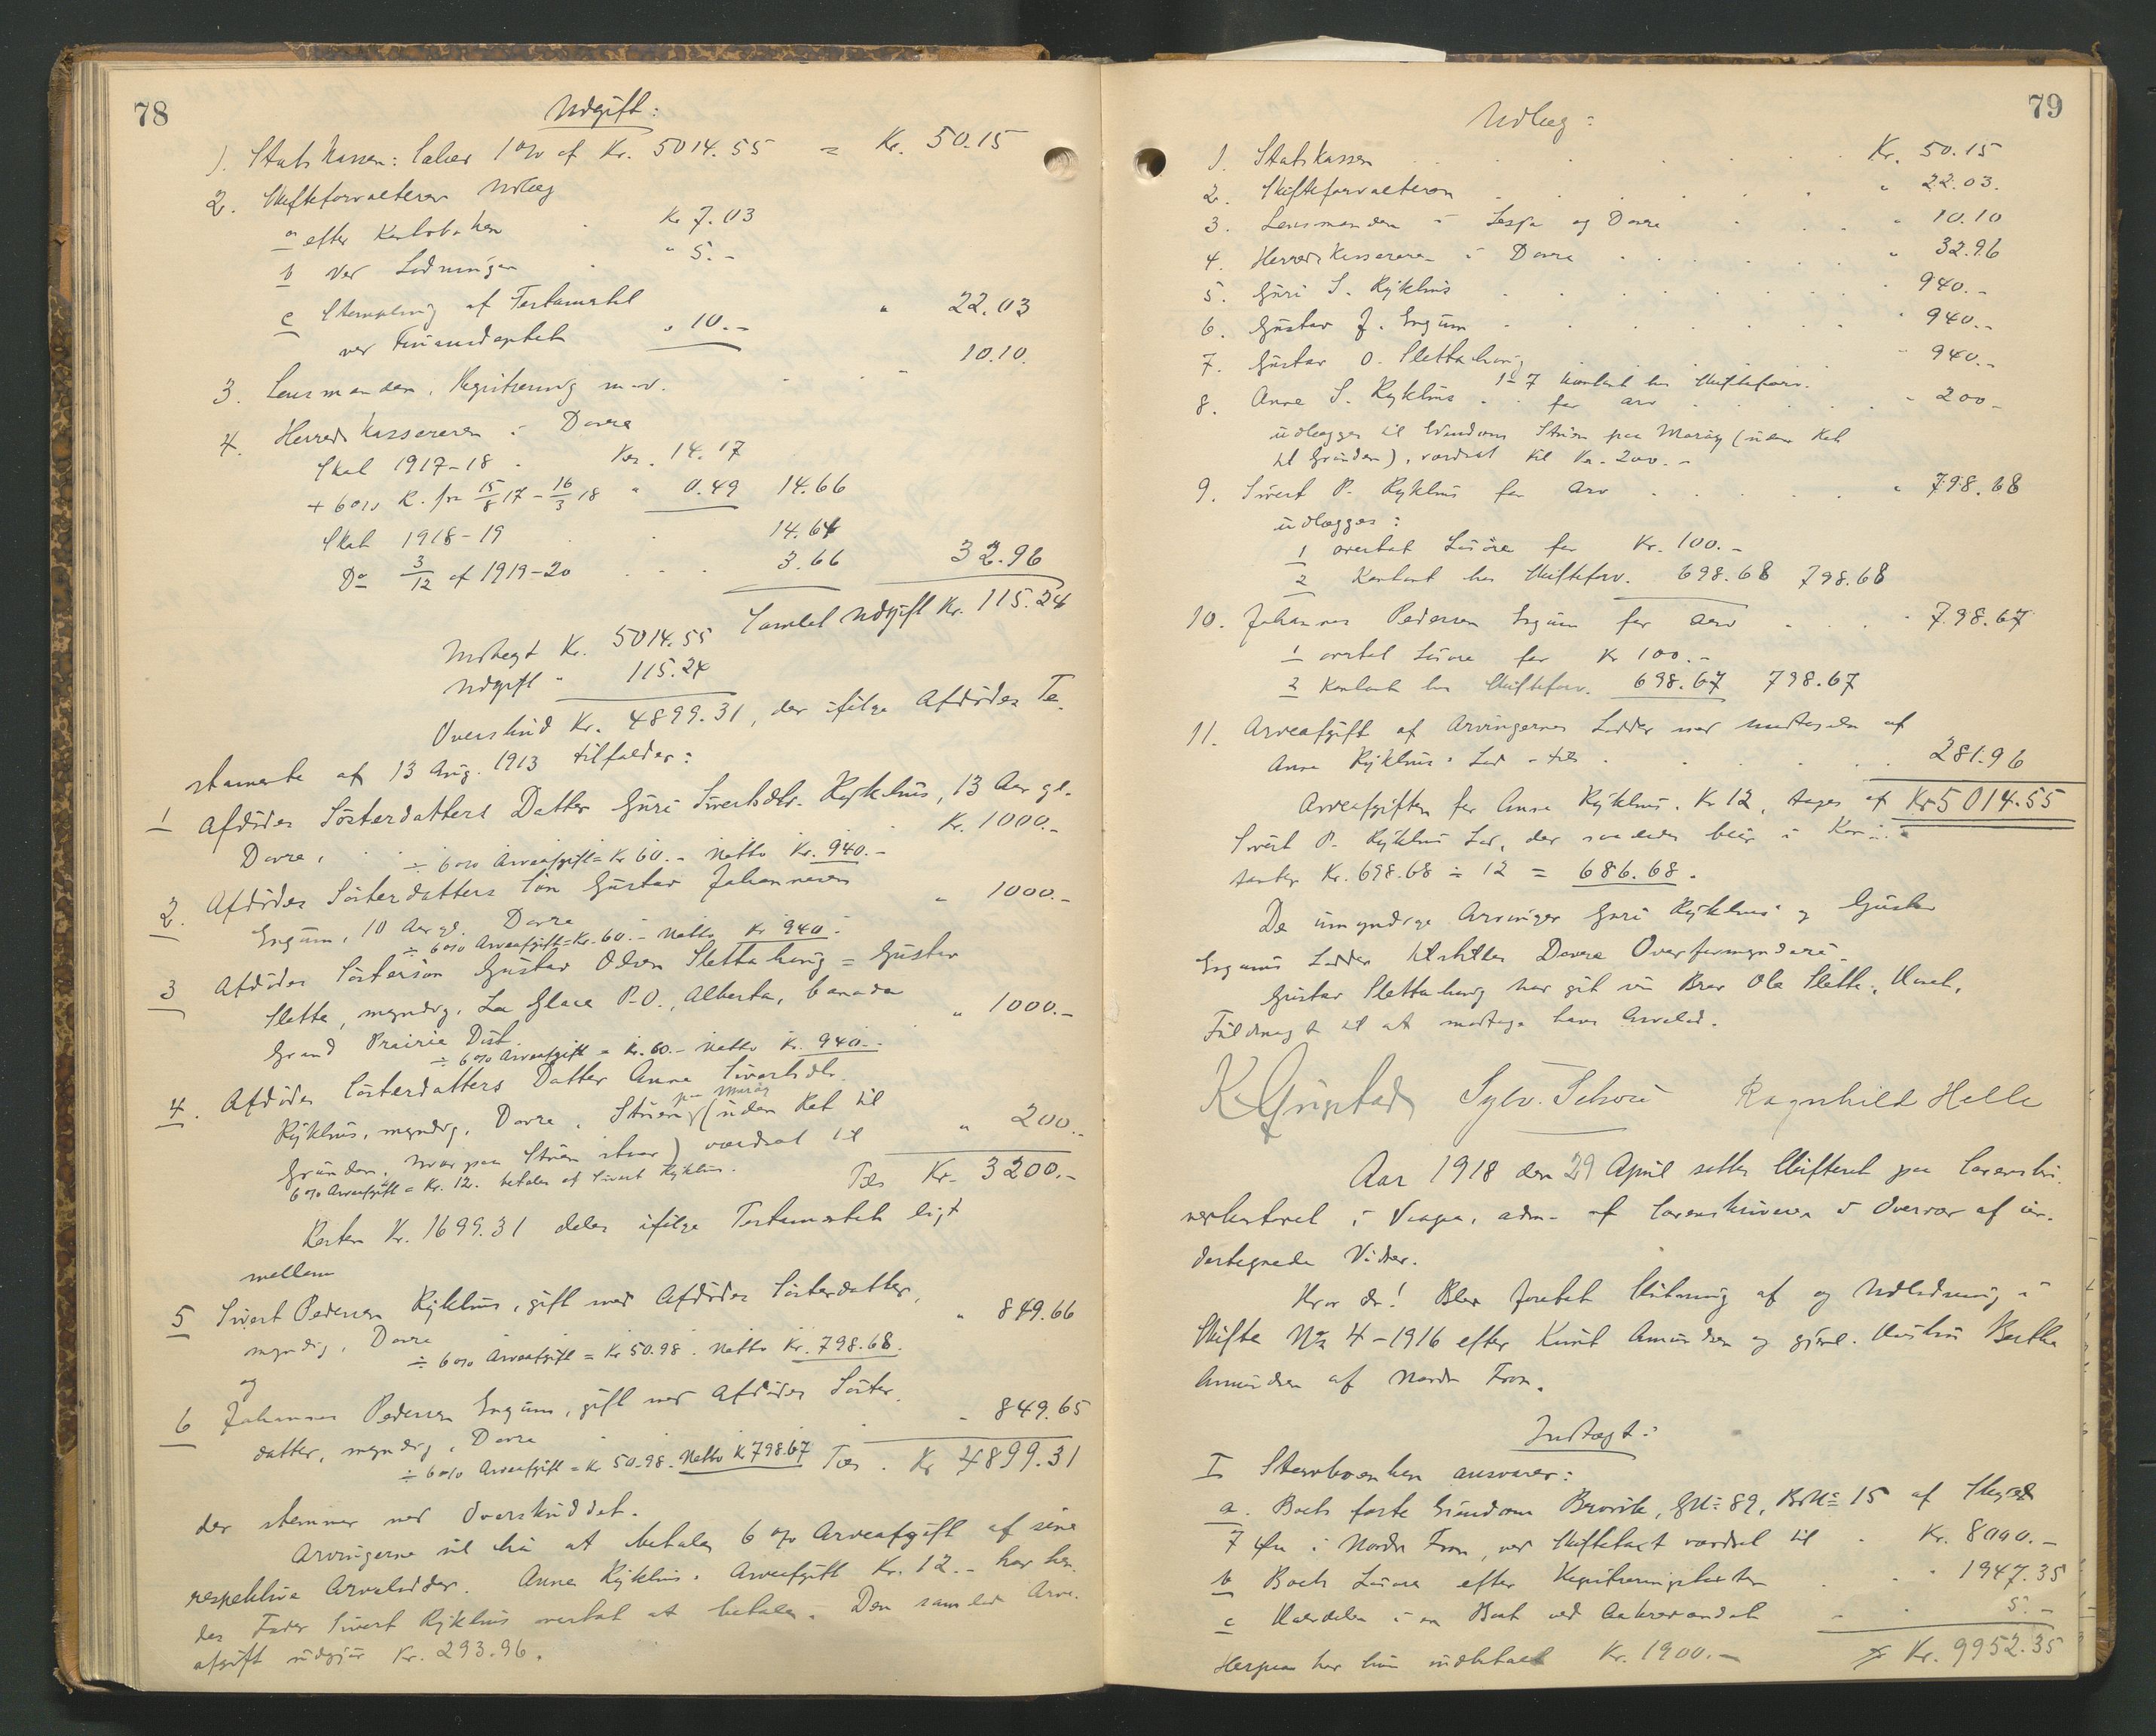 78
Udgift:
1. Statskassen: 1% af Kr. 5014.55 = Kr. 50.15
2. Skifteforvalteren Udlæg
a efter Kontoboken Kr 7.03
b ved Lodningen " 5.-
c Stempling af Testamentet
ved Finansdeptet " 10.- " 22.03
3. Lensmanden, Registrering m.v. 10.10.
4. Herredskassereren i Dovre
Skat 1917-18 Kr. 14.17
+ 6% R. fra 15/8 17 - 16/3 18 " 0.49 14.66
Skat 1918-19 14.64
Do 3/12 af 1919-20 3.66 32.96
Samlet Udgift Kr. 115.24
Indtægt Kr. 5014.55
Udgift " 115.24
Overskud Kr. 4899.31, der ifølge Afdødes Te-
stamente af 13 Aug. 1913 tilfalder:
1 Afdødes Søsterdatters Datter Guri Sivertsdtr. Rykhus, 13 Aar gl.
Dovre, Kr. 1000.-
÷ 6% Arveafgift = Kr 60.- Netto Kr. 940.-
2. Afdødes Søsterdatters Søn Gustav Johannesen
Engum, 10 Aar gl. Dovre " 1000.-
÷ 6% Arveafgift = Kr. 60.- Netto Kr 940.-
3 Afdødes Søstersøn Gustav Olsen Slettahaug = Gustav
Slette, myndig, La Glace P.O., Alberta, Canada
Grand Prairie Dist. " 1000.-
÷ 6% Arveafgift = Kr. 60.- Netto Kr. 940.-
4. Afdødes Søsterdatters Datter Anne Sivertsdtr.
Rykhus, myndig, Dovre, Stuen paa Moräg (uden Ret til
Grunden, hvorpaa Stuen staar) værdsat til " 200.-
6% Arveafgift = Kr. 12. betales af Sivert Rykhus.
Tils Kr. 3200.-
Resten Kr. 1699.31 deles ifølge Testamentet ligt
mellem
5 Sivert Pedersen Rykhus, gift med Afdødes Søsterdatter,
myndig, Dovre " 849.66
÷ 6% Arveafgift = Kr 50.98. Netto Kr. 798.68.
og
6 Johannes Pedersen Engum, gift med Afdødes Søster-
datter, myndig, Dovre - 849.65
÷ 6% Arveafgift = Kr 50.98. Netto Kr 798.67 Tils. Kr 4899.31
der stemmer med Overskuddet.
Arvingerne vil ha at betale 6% Arveafgift af sine
respektive Arvelodder. Anne Rykhus. Arveafgift Kr. 12.- har hen-
des Fader Sivert Rykhus overtat at betale. Den samlede Arve-
afgift udgjør Kr. 293.96.
79
Udlæg:
1. Statskassen Kr. 50.15
2. Skifteforvalteren " 22.03.
3. Lensmanden i Lesja og Dovre " 10.10
4. Herredskassereren i Dovre " 32.96
5. Guri S. Rykhus " 940.-
6. Gustav J. Engum " 940.-
7. Gustav O. Slettahaug - 940.-
1-7 kontant hos Skifteforv.
8. Anne S. Rykhus for arv - 200-
udlægges til Eiendom Stuen paa Moräg (uden Ret
til Grunden), værdsat til Kr. 200.-
9. Sivert P. Rykhus for Arv " 798.68
udlægges:
1 overtat Løsøre for Kr. 100.-
2 Kontant hos Skifteforv. 698.68 798.68
10. Johannes Pedersen Engum for arv - 798.67
1 overtat Løsøre for Kr 100.-
2 Kontant hos Skifteforv. 698.67 798.67
11. Arveafgift af Arvingernes Lodder med Undtagelse af
Anne Rykhus's Lod - tils 281.96
Arveafgiften for Anne Rykhus. Kr 12, tages af Kr 5014.55
Sivert P. Rykhus Lod, der saaledes blir i Kon-
tanter Kr. 698.68 ÷ 12 = 686.68.
De umyndige Arvinger Guri Rykhus og Gustav
Engums Lodder tilstilles Dovre Overformynderi.
Gustav Slettahaug har git sin Bror Ola Slette,
Fuldmagt til at modtage hans Arvelod.
K Grigstad Sylv. Schou Ragnhild Helle
Aar 1918 den 29 April sattes Skifteret paa Sorenskri-
verkontoret i Vaage, adm. af Sorenskriveren i Overvær af un-
dertegnede Vidner.
Hvor da! Blev foretat Slutning af og Udlodning i
Skifte No 4-1916 efter Knut Amundsen og gjenl. Hustru Berthe
Amundsen af Nordre Fron.
Indtægt:
I Stervboenken ansvarer:
a. Boets faste Eiendom Brovik, GNo 89, BrNo 15 af Skyld
7 Øre i Nordre Fron, ved Skiftetaxt værdsat til Kr. 8000.-
b Boets Løsøre efter Registreringstaxten " 1947.35
c Halvdelen i en Baat ved 5.-
Herpaa har hun indbetalt Kr. 1900.- Kr. 9952.35